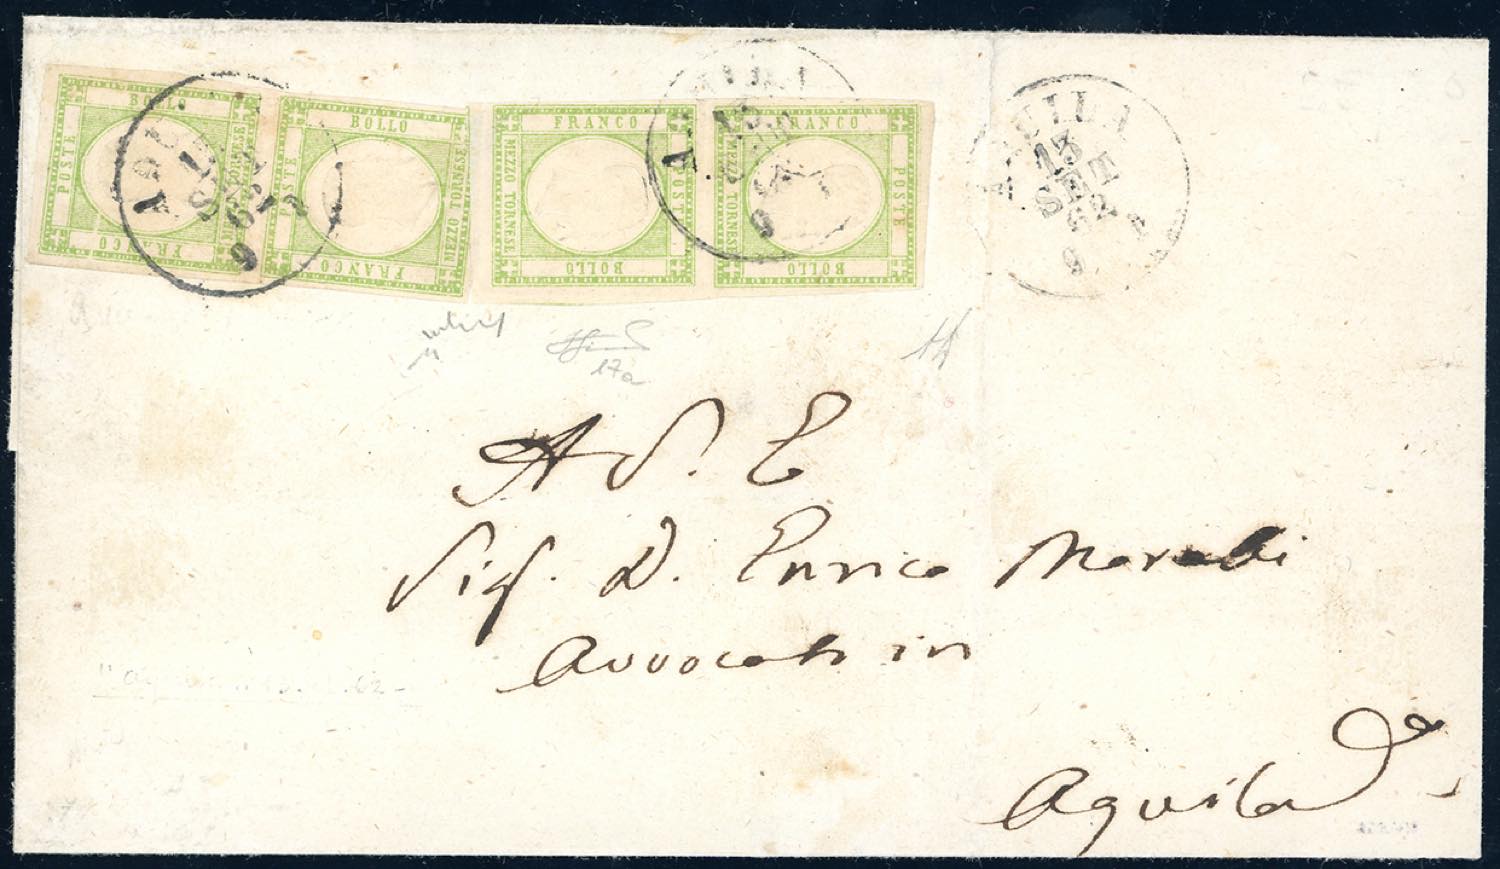 BOLLO
POSTE
FRANCO
BOLLO
POSTE
MEZZO TORNESE
FRANCO
FRANCO
MEZZO TORNESE
POSTE
BOLLO
FRANCO
MEZZO TORNESE
POSTE
BOLLO
AQUILA
13
SET
62
9
17a
A S. E
Sig. D. Enrico Morelli
Avvocato in
Aquila